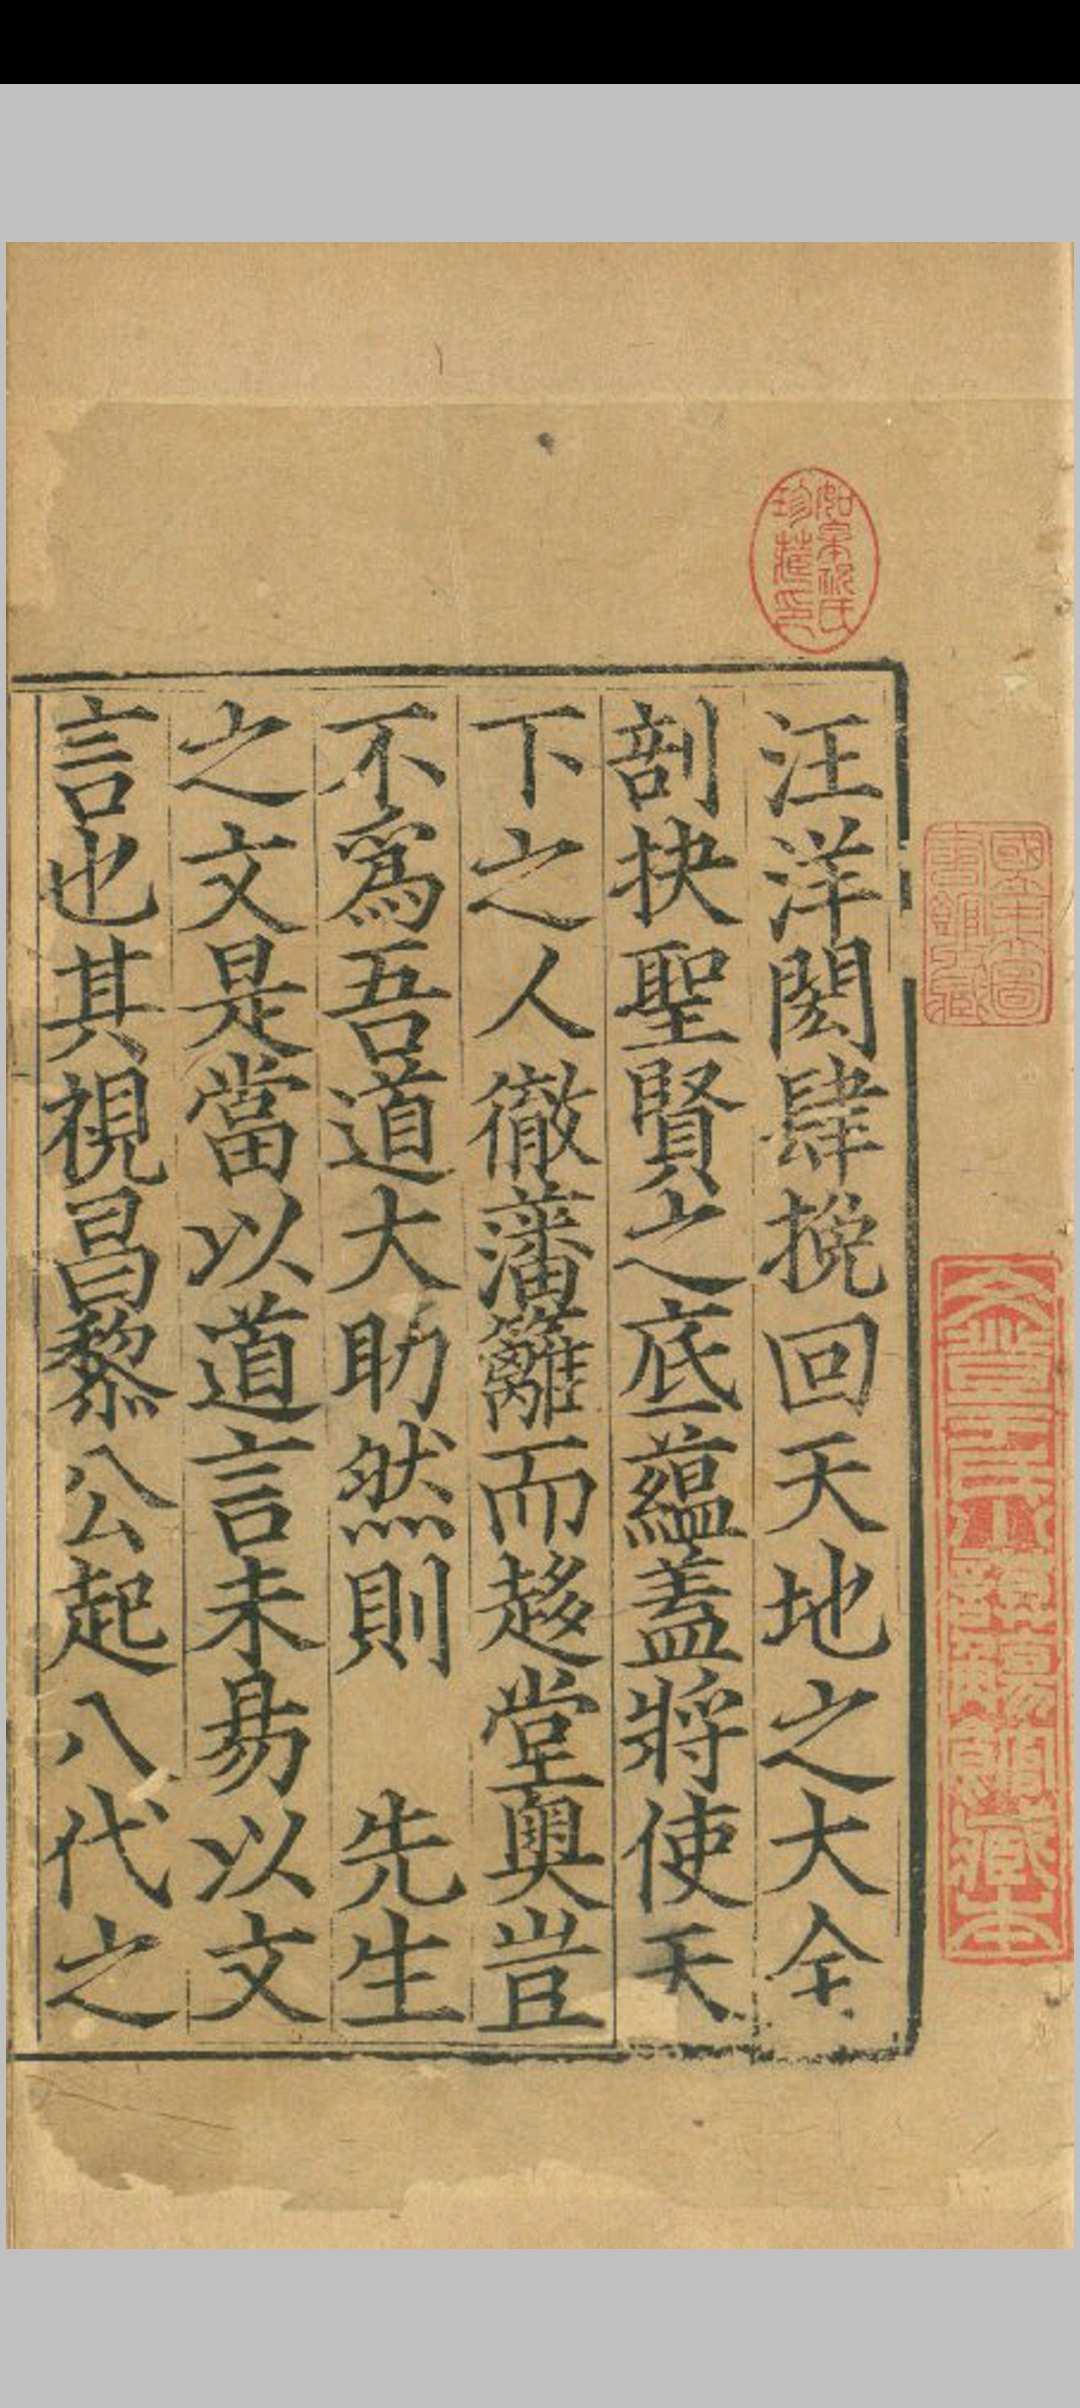 汪洋閎肆挽回天地之大全
剖抉聖賢之底蘊蓋將使天
下之人徹藩籬而趍堂奧豈
不爲吾道大助然則　先生
之文是當以道言未昜以文
言也其視昌黎公起八代之
如皋祝氏
珍藏印
國立中央圖
書館收藏